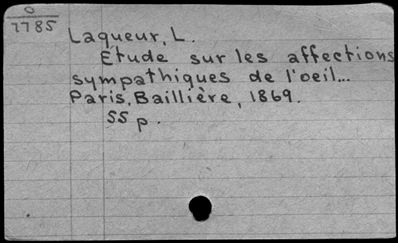 O
7785
Laqueur, L.
Etude sur les affections
sympathiques de l'oeil...
Paris, Baillière, 1869.
55 p.